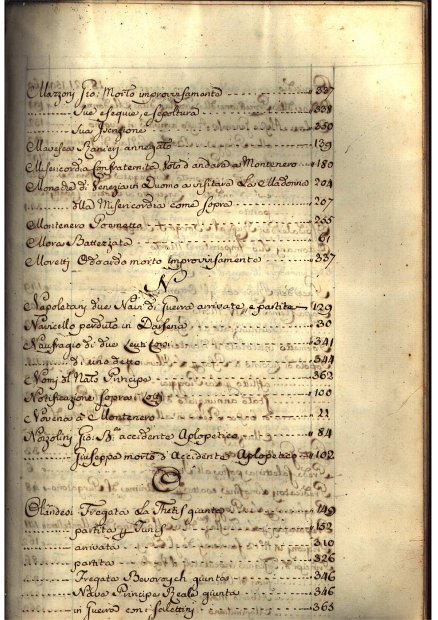 Mazzoni Gio: Morto improvvisamente 337
Sue esequie, e sepoltura 338
Sua Pensione 350
Ranieri annegato 139
Misericordia Confraternita Voto d'andare a Montenero 180
Monache di Venezia in Duomo a visitare La Madonna 204
alla Misericordia come sopra 207
Montenero 255
Mora Battezzata 61
Moretti Odoardo morto Improvvisamente 337
N
Napoletani due Navi di Guerra arrivate, e partite 129
Navicello perduto in Darsena 30
Naufragio di due 341
di uno detto 344
Nomi del Nato Principe 362
Notificazione sopra i 100
Novena a Montenero 22
Nozzolini Gio: Bta accidente Aplopetico 84
Giuseppe morto d'Accidente Aplopetico 102
O
Olandesi Fregata La Thetis giunta 149
partita p Tunis 152
arrivata 310
partita 326
Fregata giunta 346
Nave Principe Reale giunta 346
in Guerra con i 365